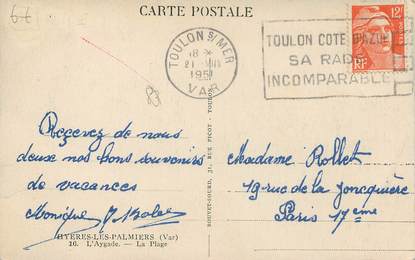 6€
CARTE POSTALE
TOULON S/MER
18 *
21 VIII
1951
VAR
TOULON COTE D'AZUR
SA RADE
INCOMPARABLE
12F
POSTES
RF
Reçevez de nous
deux nos bons souvenirs
de vacances
Monique
Madame Rollet
19 rue de la Joncquière
Paris 17ème
HYÈRES-LES-PALMIERS (Var)
16. L'Aygade. — La Plage
RUE PICOT - TOULON